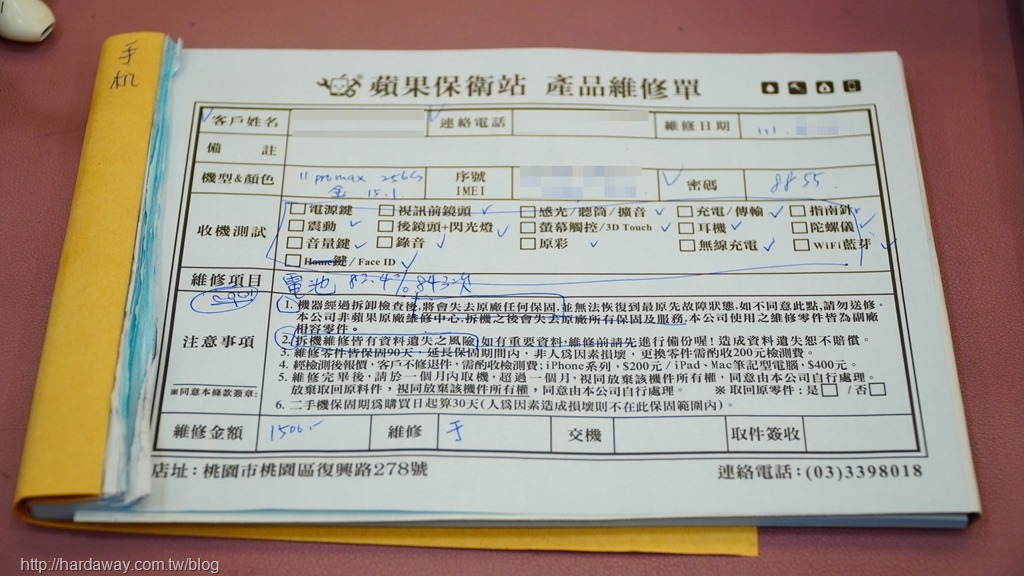 手
机
蘋果保衛站 產品維修單
客戶姓名 連絡電話 維修日期 111.
備 註
機型&顏色 11 promax 256G 金 15.1 序號 IMEI 密碼 8855
收機測試
□電源鍵 □視訊前鏡頭 □感光/聽筒/擴音 □充電/傳輸 □指南針
□震動 □後鏡頭+閃光燈 □螢幕觸控/3D Touch □耳機 □陀螺儀
□音量鍵 □錄音 □原彩 □無線充電 □WiFi藍芽
□Home鍵/Face ID
維修項目 電池 82.4%
注意事項
1. 機器經過拆卸檢查後,將會失去原廠任何保固,並無法恢復到最原先故障狀態,如不同意此點,請勿送修。
本公司非蘋果原廠維修中心,拆機之後會失去原廠所有保固及服務,本公司使用之維修零件皆為副廠
相容零件。
2. 拆機維修皆有資料遺失之風險,如有重要資料,維修前請先進行備份喔!造成資料遺失恕不賠償。
3. 維修零件皆保固90天,延長保固期間內,非人為因素損壞,更換零件需酌收200元檢測費。
4. 經檢測後報價,客戶不修退件,需酌收檢測費;iPhone系列,$200元/iPad、Mac筆記型電腦,$400元。
5. 維修完畢後,請於一個月內取機,超過一個月,視同放棄該機件所有權,同意由本公司自行處理。
放棄取回原料件,視同放棄該機件所有權,同意由本公司自行處理。 ※取回原零件:是□/否□
6. 二手機保固期為購買日起算30天(人為因素造成損壞則不在此保固範圍內)。
※同意本條款簽章:
維修金額 1500.- 維修 交機 取件簽收
店址:桃園市桃園區復興路278號 連絡電話:(03)3398018
http://hardaway.com.tw/blog